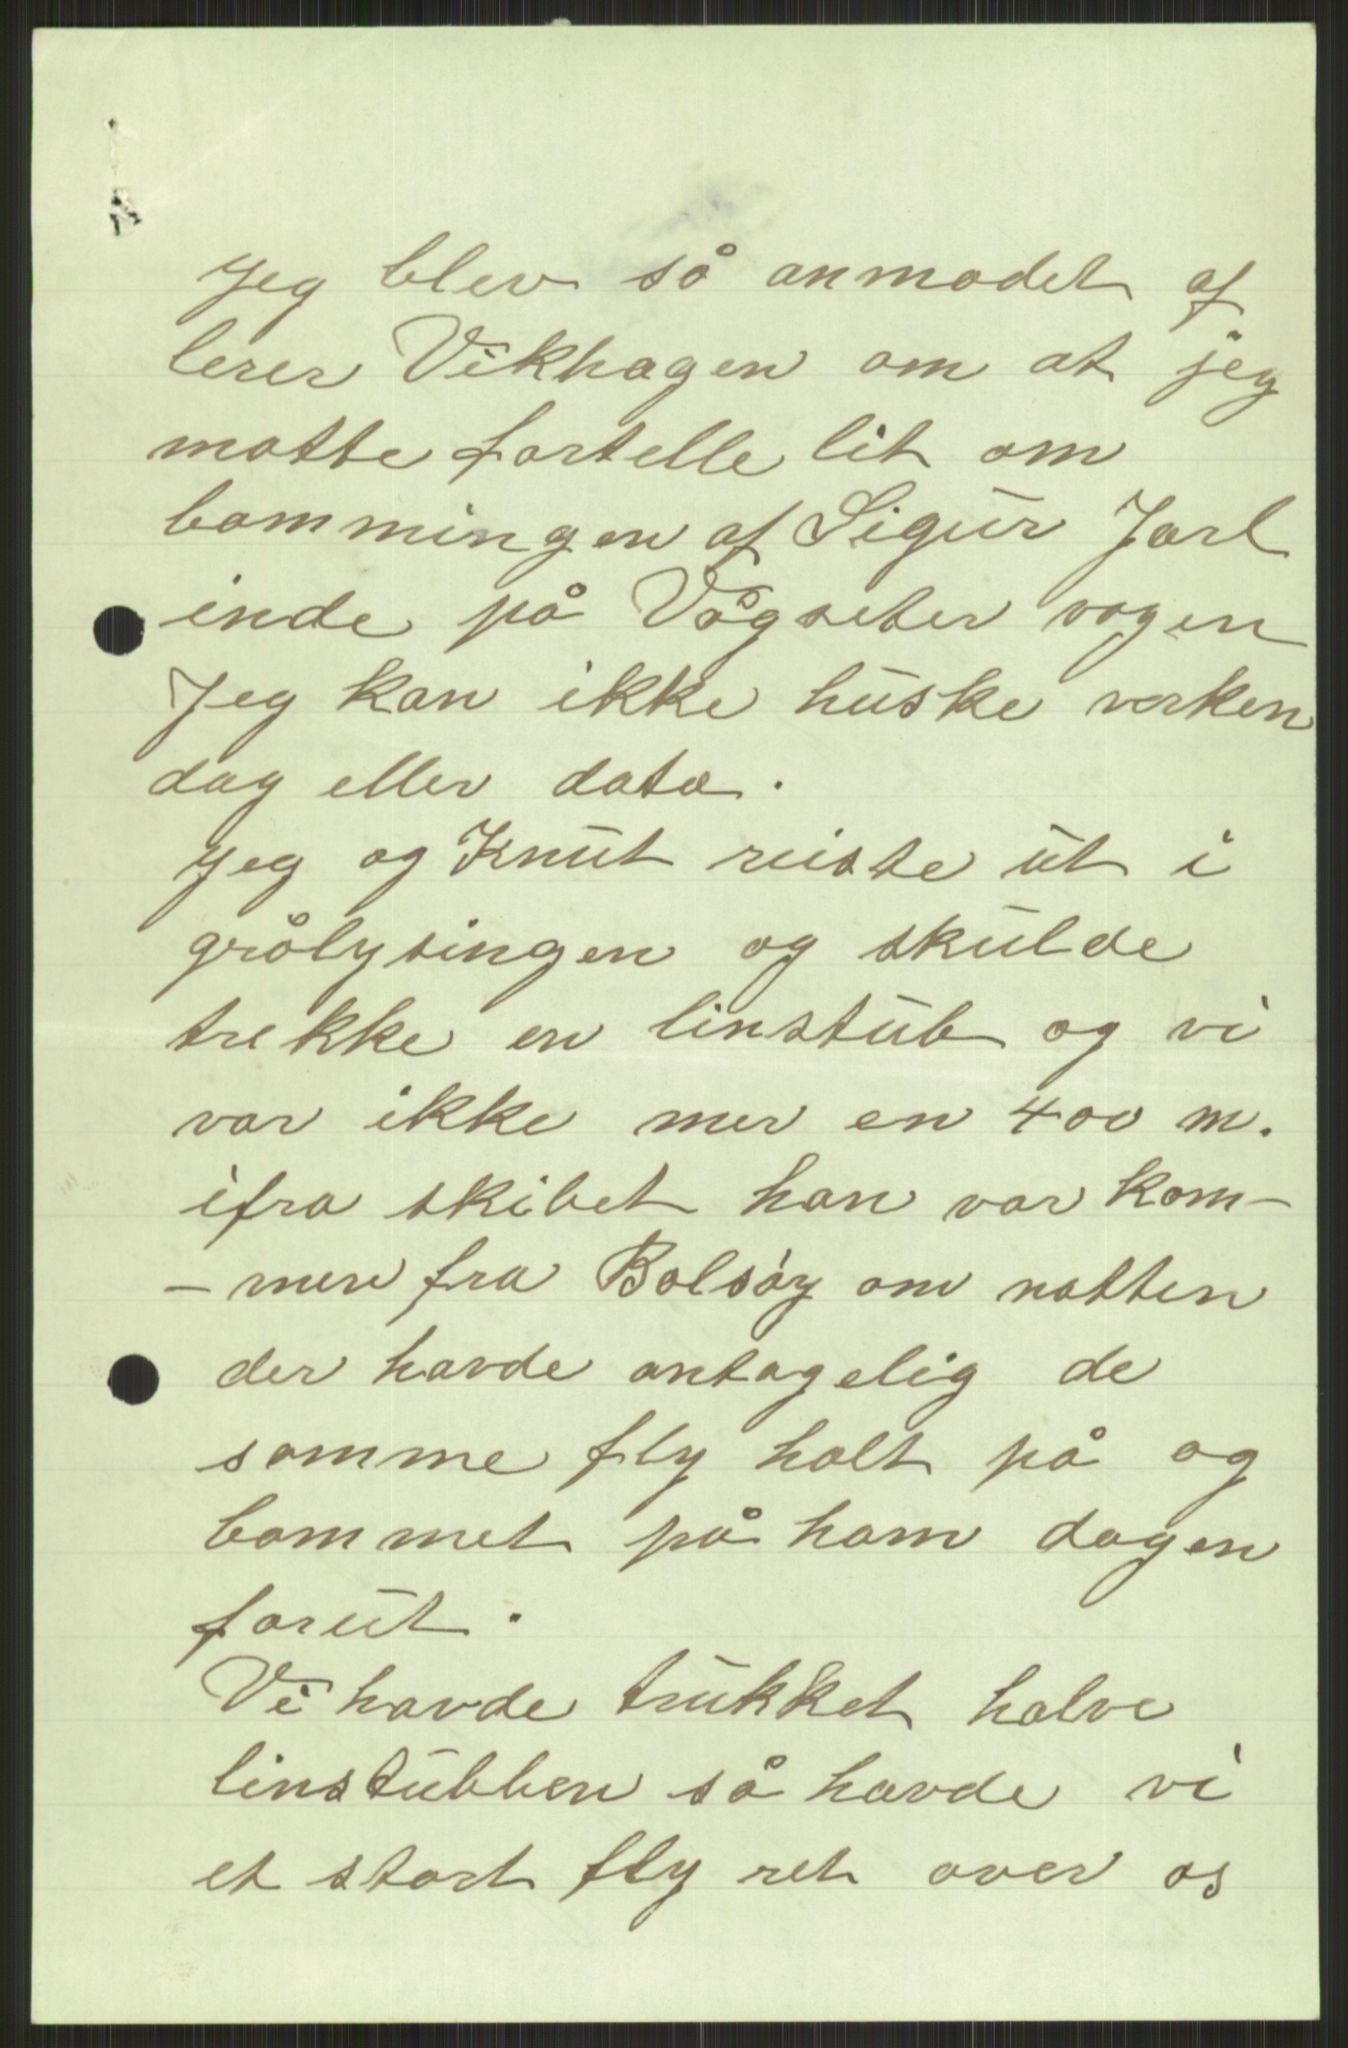 Jeg blev så anmodet af
lerer Vikhagen om at jeg
motte fortelle lit om
bommingen af Sigur Jarl
inde på Vågseter vogen
Jeg kan ikke huske verken
dag eller dato.
Jeg og Knut reiste ut i
grålysingen og skulde
trekke en linstub og vi
var ikke mer en 400 m.
ifra skibet han var kom-
-mere fra Bolsøy om natten
der havde antagelig de
samme fly holt på og
bommet på ham dagen
forut.
Vi havde trukket halve
linstubben så havde vi
et stort fly ret over os